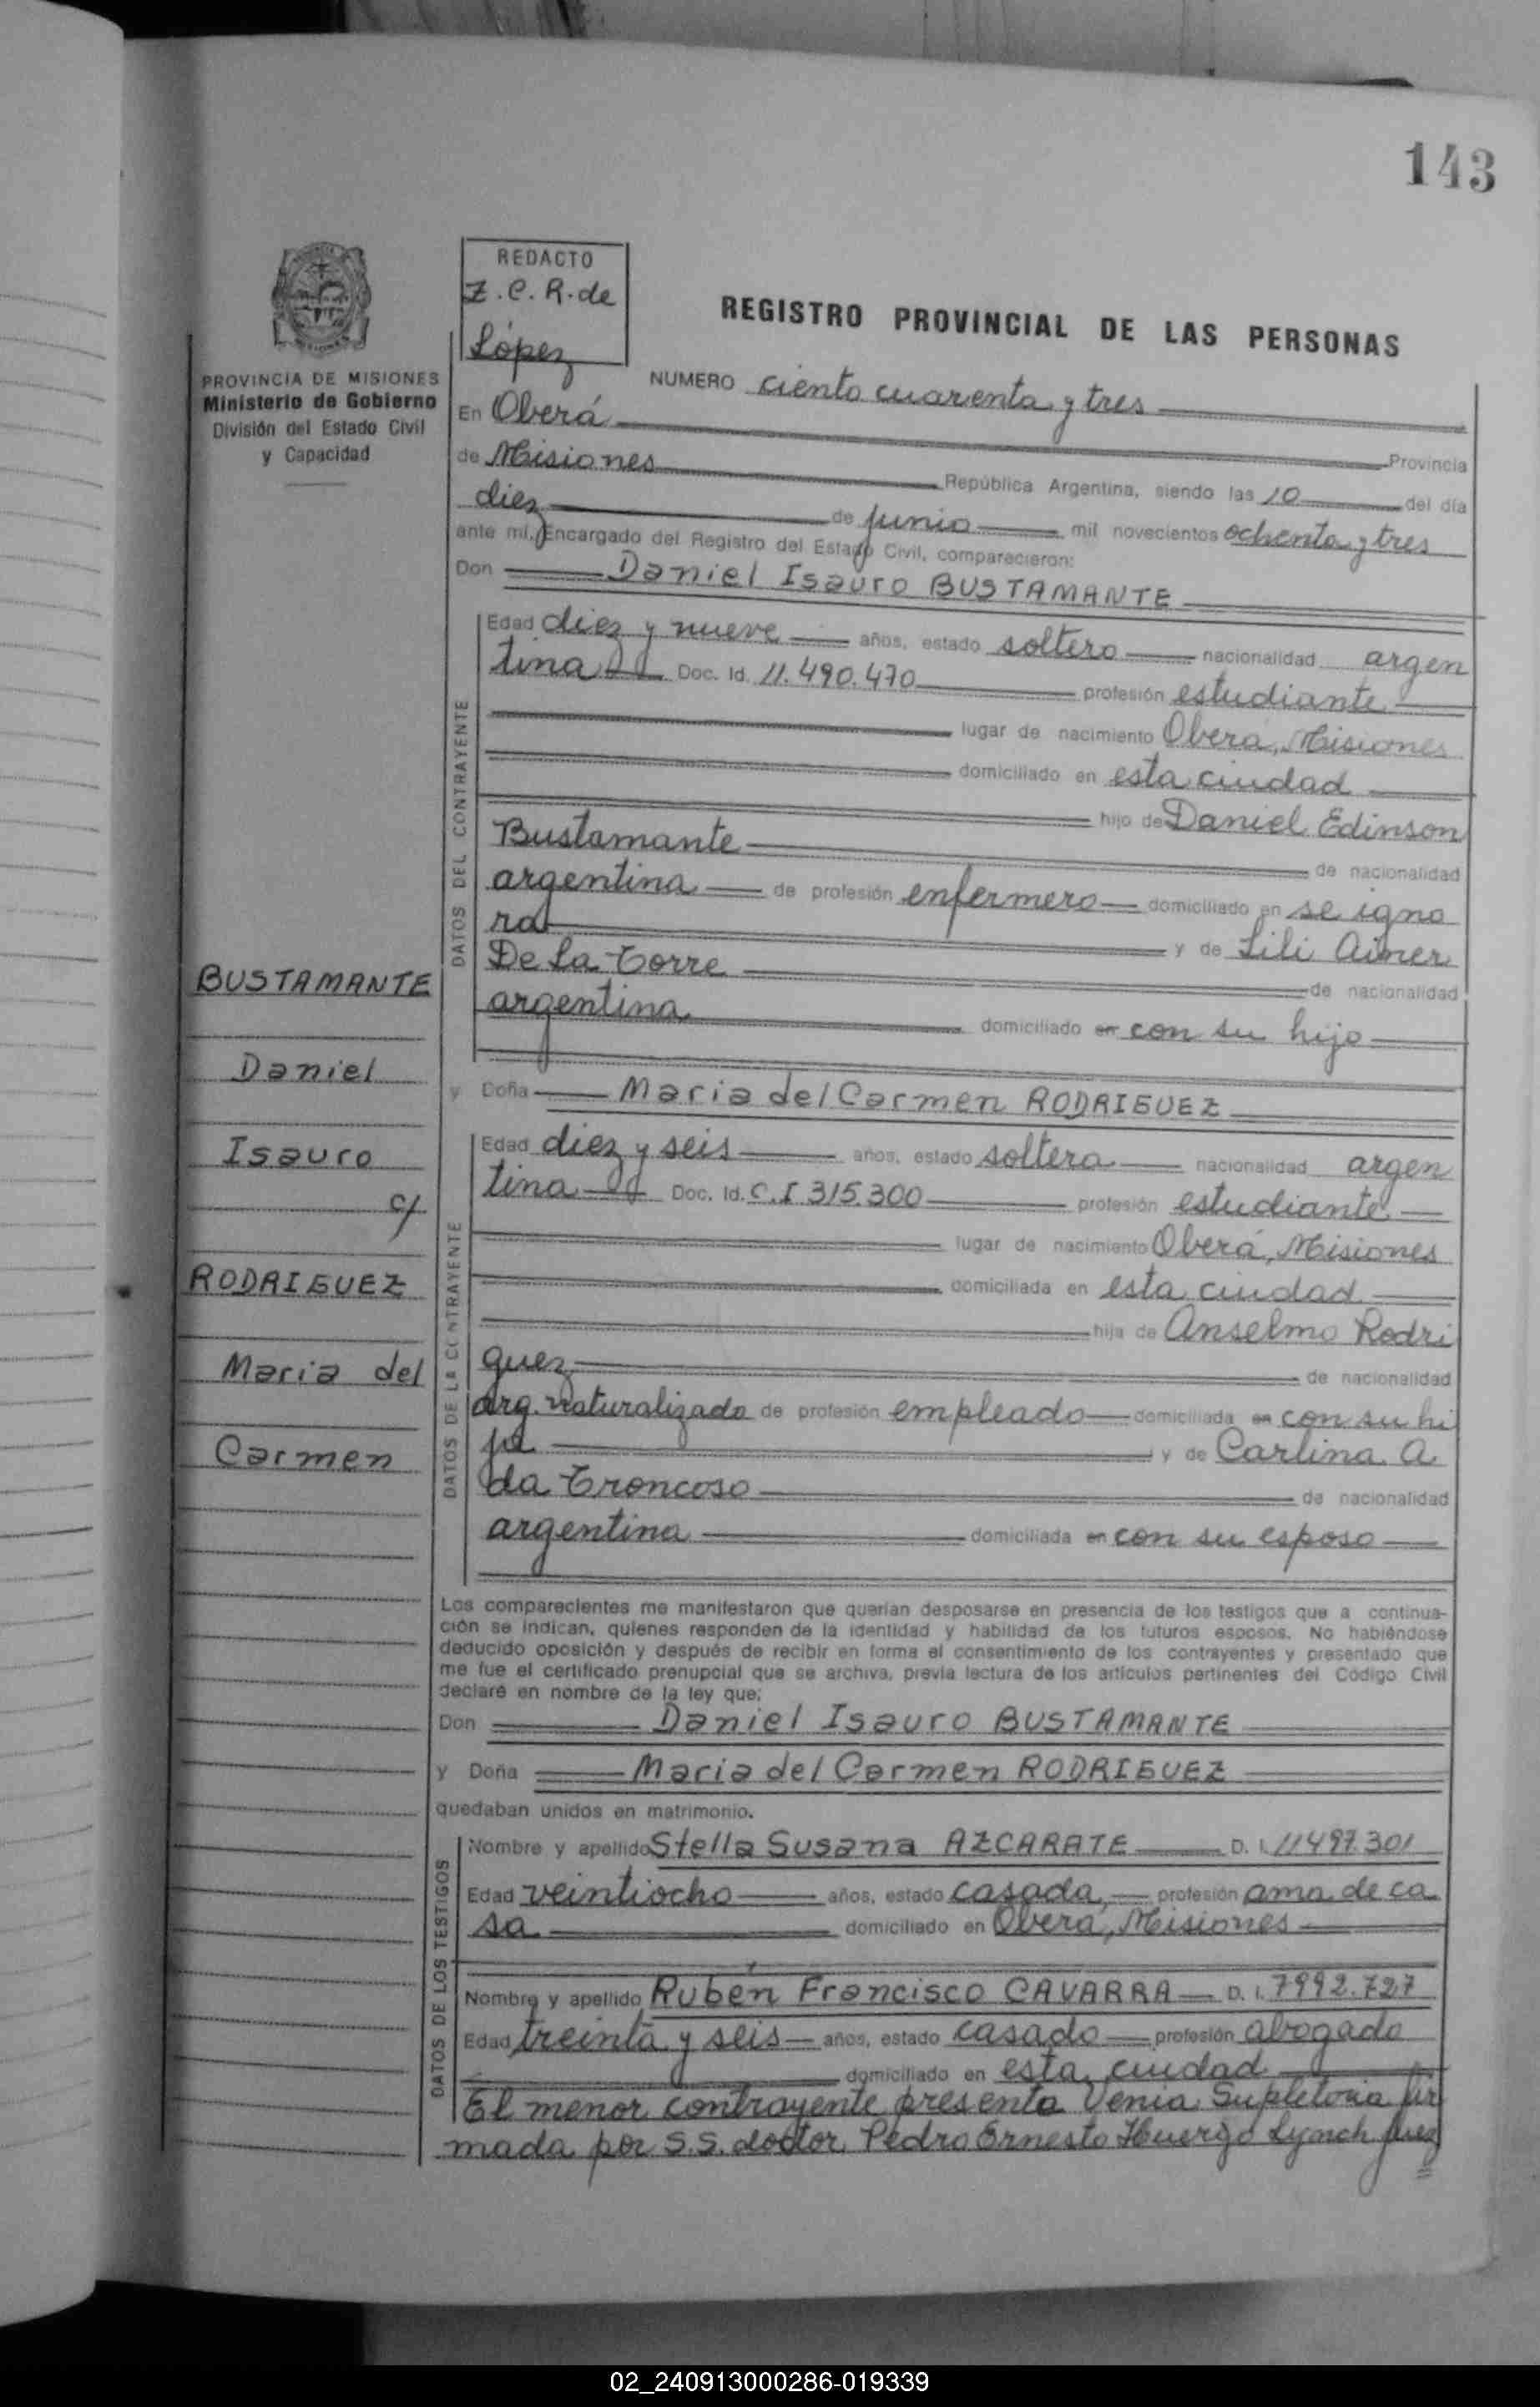 143
REDACTO
Z.C.R. de
López
REGISTRO PROVINCIAL DE LAS PERSONAS
PROVINCIA DE MISIONES
Ministerio de Gobierno
División del Estado Civil
y Capacidad
NUMERO ciento cuarenta y tres
En Oberá Provincia
de Misiones República Argentina, siendo las 10 del día
diez de junio mil novecientos ochenta y tres
ante mí, Encargado del Registro del Estado Civil, comparecieron:
Don Daniel Isauro BUSTAMANTE
DATOS DEL CONTRAYENTE
Edad diez y nueve años, estado soltero nacionalidad argen
tina Doc. Id. 11.490.470 profesión estudiante
lugar de nacimiento Oberá, Misiones
domiciliado en esta ciudad
hijo de Daniel Edinson
Bustamante de nacionalidad
argentina de profesión enfermero domiciliado en se igno
ra y de Lili Aimer
De La Torre de nacionalidad
argentina domiciliado en con su hijo
BUSTAMANTE
Daniel
Isauro
c/
RODRIGUEZ
Maria del
Carmen
y Doña Maria del Carmen RODRIGUEZ
DATOS DE LA CONTRAYENTE
Edad diez y seis años, estado soltera nacionalidad argen
tina Doc. Id. C.I 315.300 profesión estudiante
lugar de nacimiento Oberá, Misiones
domiciliada en esta ciudad
hija de Anselmo Rodri
guez de nacionalidad
arg. naturalizado de profesión empleado domiciliada en con su hi
ja y de Carlina A
da Troncoso de nacionalidad
argentina domiciliada en con su esposo
Los comparecientes me manifestaron que querían desposarse en presencia de los testigos que a continua-
ción se indican, quienes responden de la identidad y habilidad de los futuros esposos. No habiéndose
deducido oposición y después de recibir en forma el consentimiento de los contrayentes y presentado que
me fue el certificado prenupcial que se archiva, previa lectura de los artículos pertinentes del Código Civil
declaré en nombre de la ley que:
Don Daniel Isauro BUSTAMANTE
y Doña Maria del Carmen RODRIGUEZ
quedaban unidos en matrimonio.
DATOS DE LOS TESTIGOS
Nombre y apellido Stella Susana AZCARATE D. I. 11497.301
Edad veintiocho años, estado casada, profesión ama de ca
sa domiciliado en Oberá, Misiones
Nombre y apellido Rubén Francisco CAVARRA D. I. 7992.727
Edad treinta y seis años, estado casado profesión abogado
domiciliado en esta ciudad
El menor contrayente presenta Venia Supletoria fir
mada por S.S. doctor Pedro Ernesto Huergo Lynch Juez
02_240913000286-019339